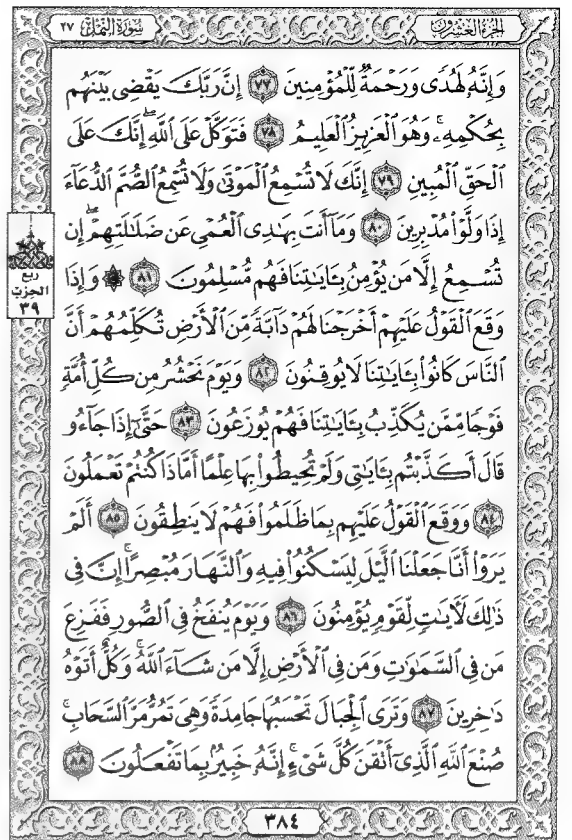 الجزء العشرون
سورة النمل ٢٧
وَإِنَّهُۥ لَهُدًى وَرَحْمَةٌ لِّلْمُؤْمِنِينَ ٧٧ إِنَّ رَبَّكَ يَقْضِى بَيْنَهُم
بِحُكْمِهِۦۚ وَهُوَ ٱلْعَزِيزُ ٱلْعَلِيمُ ٧٨ فَتَوَكَّلْ عَلَى ٱللَّهِۖ إِنَّكَ عَلَى
ٱلْحَقِّ ٱلْمُبِينِ ٧٩ إِنَّكَ لَا تُسْمِعُ ٱلْمَوْتَىٰ وَلَا تُسْمِعُ ٱلصُّمَّ ٱلدُّعَآءَ
إِذَا وَلَّوْا۟ مُدْبِرِينَ ٨٠ وَمَآ أَنتَ بِهَـٰدِى ٱلْعُمْىِ عَن ضَلَـٰلَتِهِمْۖ إِن
تُسْمِعُ إِلَّا مَن يُؤْمِنُ بِـَٔايَـٰتِنَا فَهُم مُّسْلِمُونَ ٨١ ۞ وَإِذَا
وَقَعَ ٱلْقَوْلُ عَلَيْهِمْ أَخْرَجْنَا لَهُمْ دَآبَّةً مِّنَ ٱلْأَرْضِ تُكَلِّمُهُمْ أَنَّ
ٱلنَّاسَ كَانُوا۟ بِـَٔايَـٰتِنَا لَا يُوقِنُونَ ٨٢ وَيَوْمَ نَحْشُرُ مِن كُلِّ أُمَّةٍ
فَوْجًا مِّمَّن يُكَذِّبُ بِـَٔايَـٰتِنَا فَهُمْ يُوزَعُونَ ٨٣ حَتَّىٰٓ إِذَا جَآءُو
قَالَ أَكَذَّبْتُم بِـَٔايَـٰتِى وَلَمْ تُحِيطُوا۟ بِهَا عِلْمًا أَمَّاذَا كُنتُمْ تَعْمَلُونَ
٨٤ وَوَقَعَ ٱلْقَوْلُ عَلَيْهِم بِمَا ظَلَمُوا۟ فَهُمْ لَا يَنطِقُونَ ٨٥ أَلَمْ
يَرَوْا۟ أَنَّا جَعَلْنَا ٱلَّيْلَ لِيَسْكُنُوا۟ فِيهِ وَٱلنَّهَارَ مُبْصِرًاۚ إِنَّ فِى
ذَٰلِكَ لَـَٔايَـٰتٍ لِّقَوْمٍ يُؤْمِنُونَ ٨٦ وَيَوْمَ يُنفَخُ فِى ٱلصُّورِ فَفَزِعَ
مَن فِى ٱلسَّمَـٰوَٰتِ وَمَن فِى ٱلْأَرْضِ إِلَّا مَن شَآءَ ٱللَّهُۚ وَكُلٌّ أَتَوْهُ
دَٰخِرِينَ ٨٧ وَتَرَى ٱلْجِبَالَ تَحْسَبُهَا جَامِدَةً وَهِىَ تَمُرُّ مَرَّ ٱلسَّحَابِۚ
صُنْعَ ٱللَّهِ ٱلَّذِىٓ أَتْقَنَ كُلَّ شَىْءٍۚ إِنَّهُۥ خَبِيرٌۢ بِمَا تَفْعَلُونَ ٨٨
ربع
الحزب
٣٩
٣٨٤